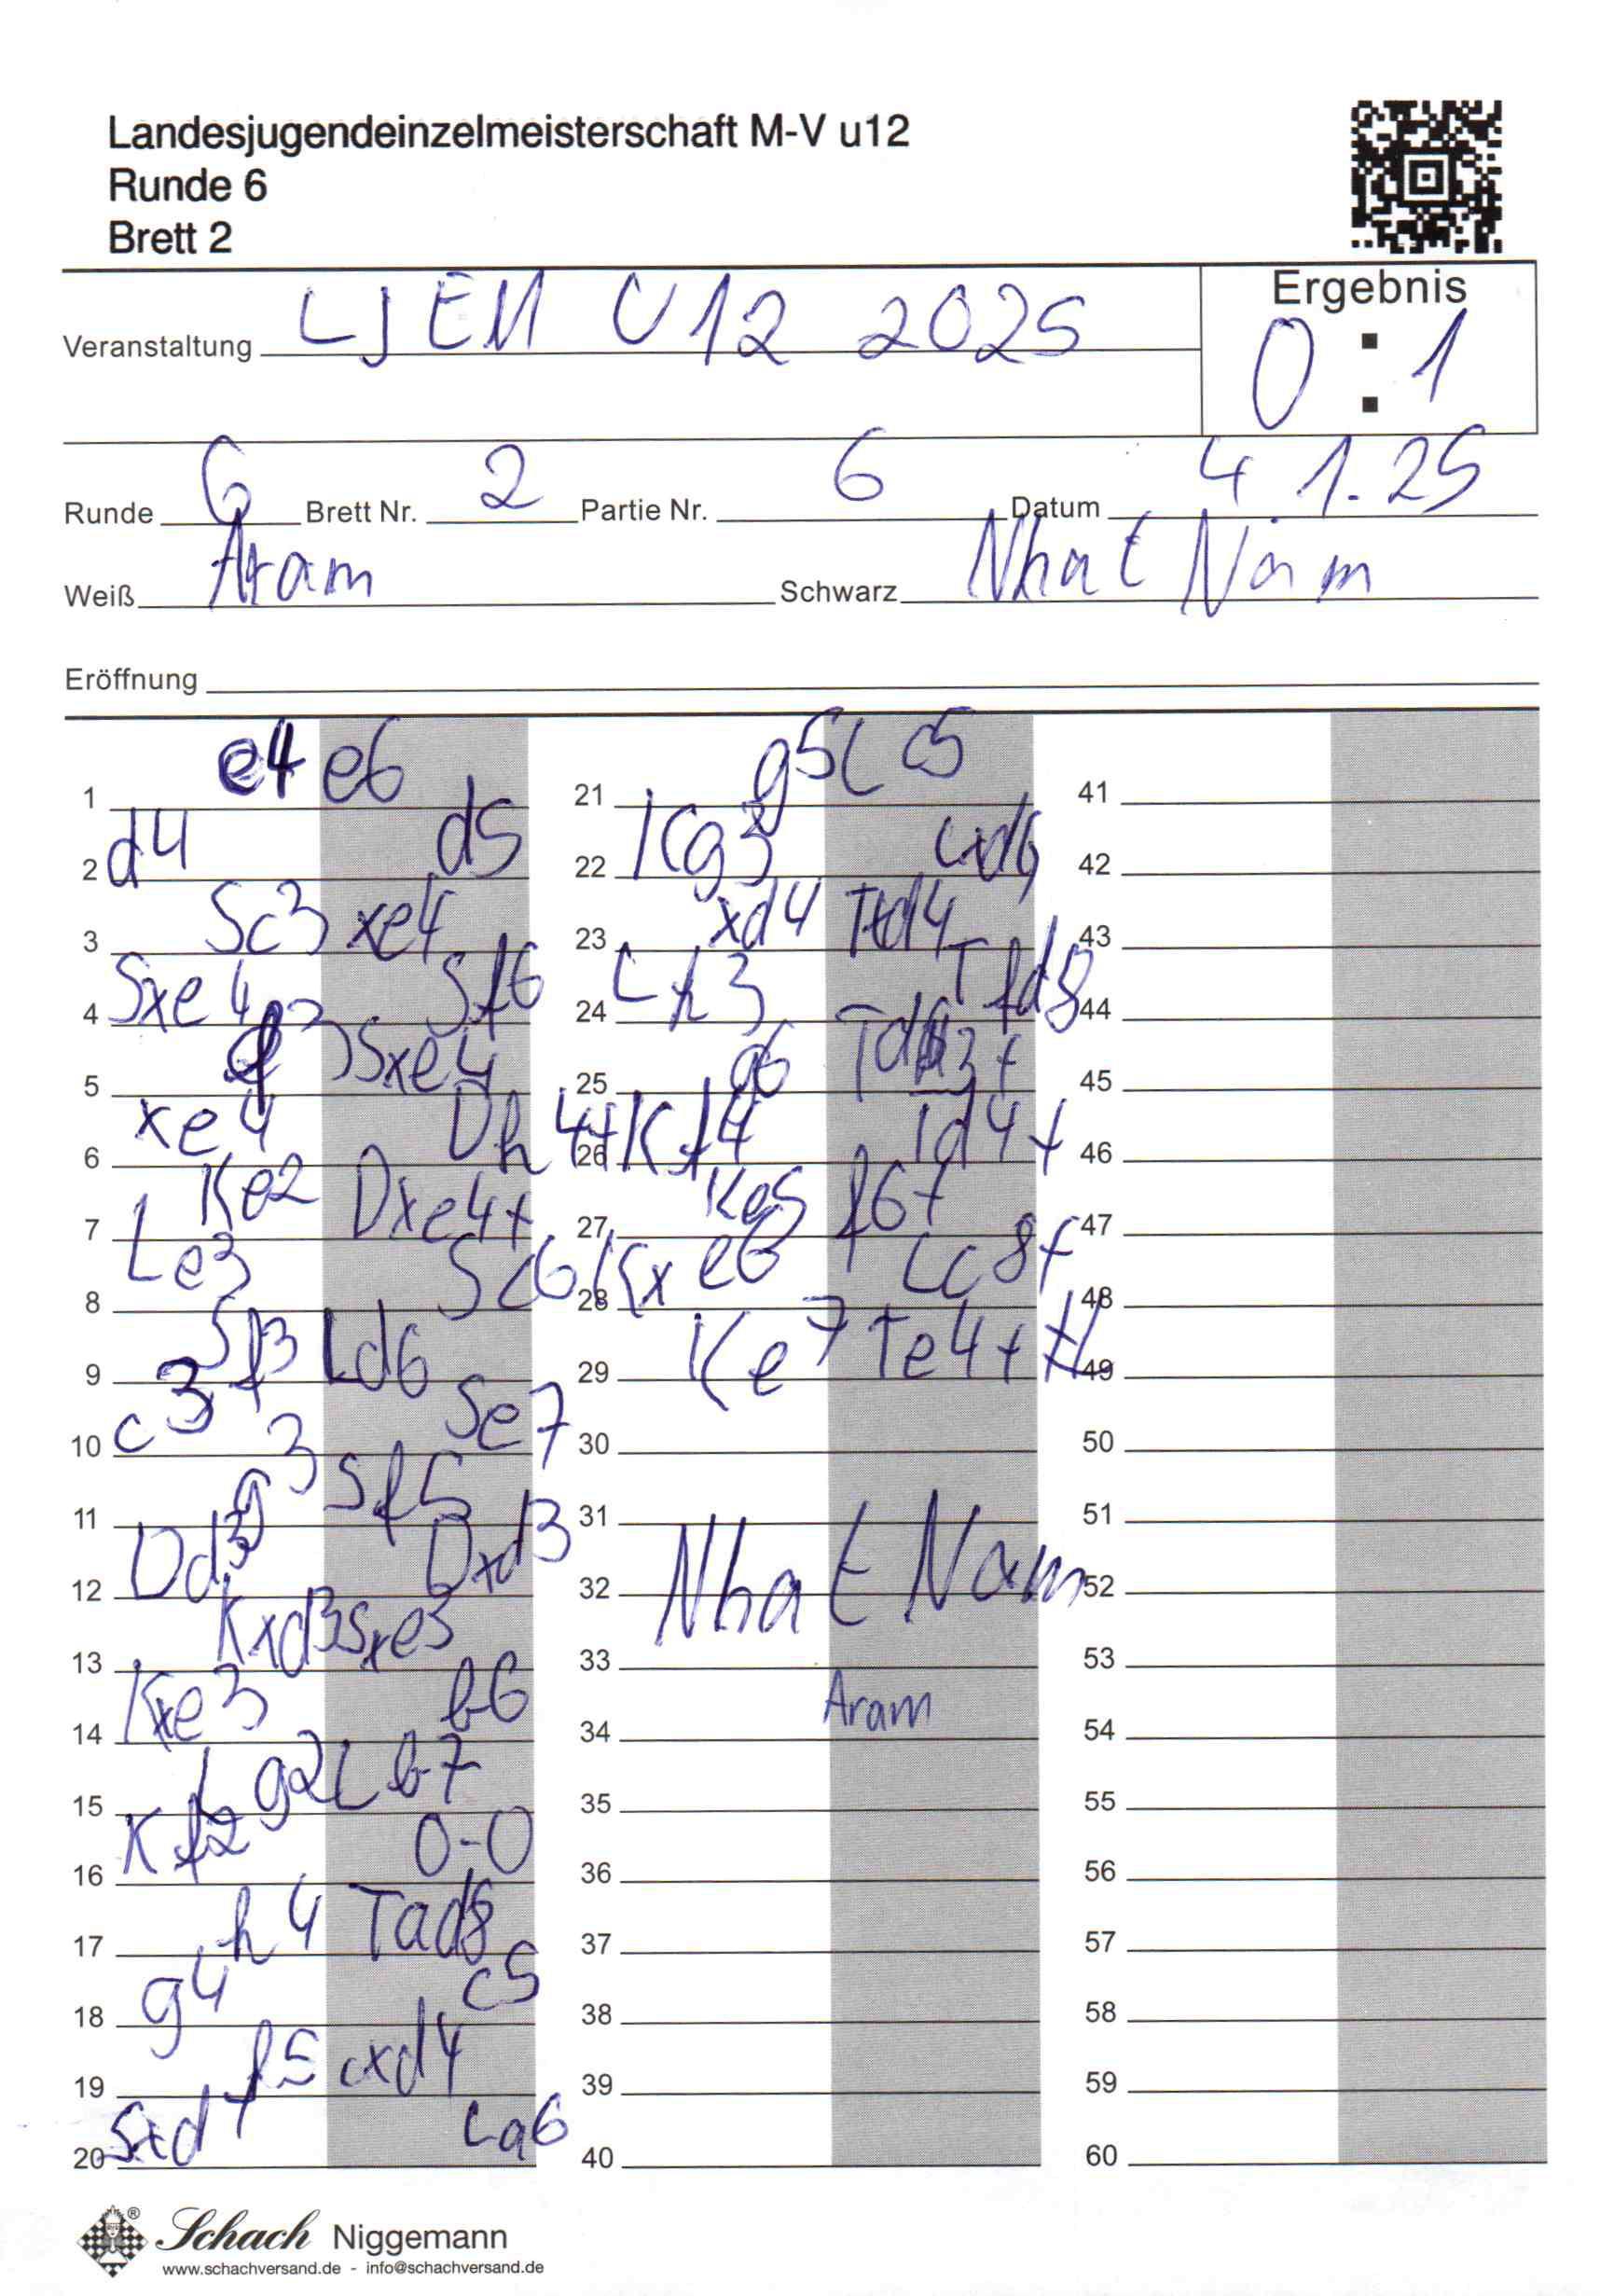 Landesjugendeinzelmeisterschaft M-V u12
Runde 6
Brett 2
Ergebnis
Veranstaltung LJEM U12 2025
0 : 1
Runde 6 Brett Nr. 2 Partie Nr. 6 Datum 4 1.25
Weiß Aram Schwarz Nhat Nam
Eröffnung
1 e4 e6
2 d4 d5
3 Sc3 xe4
4 Sxe4 Sf6
5 f3 Sxe4
6 xe4 Dh4+
7 Ke2 Dxe4+
8 Le3 Sc6
9 Sf3 Ld6
10 c3 Se7
11 g3 Sf5
12 Dd3 Dxd3
13 Kxd3 Sxe3
14 Kxe3 b6
15 Lg2 Lb7
16 Kf2 0-0
17 h4 Tad8
18 g4 c5
19 f5 cxd4
20 Sxd4 La6
21 g5 Lc5
22 Kg3 Lxd4
23 xd4 Txd4
24 Lh3 Tfd8
25 g6 Td3+
26 Kf4 Td4+
27 Ke5 f6+
28 Kxe6 Lc8+
29 Ke7 Te4+ #
30
31
32 Nhat Nam
33
34 Aram
35
36
37
38
39
40
41
42
43
44
45
46
47
48
49
50
51
52
53
54
55
56
57
58
59
60
Schach Niggemann
www.schachversand.de - info@schachversand.de